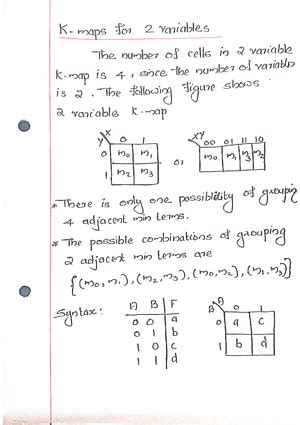 K-maps for 2 variables
The number of cells in 2 variable
K-map is 4, since the number of variables
is 2. The following figure shows
2 variable K-map
Y X 0 1
0 m0 m1
1 m2 m3
or
XY 00 01 11 10
m0 m1 m3 m2
* There is only one possibility of grouping
4 adjacent min terms.
* The possible combinations of grouping
2 adjacent min terms are
{(m0, m1), (m2, m3), (m0, m2), (m1, m3)}
Syntax:
A B F
0 0 a
0 1 b
1 0 c
1 1 d
B A 0 1
0 a c
1 b d